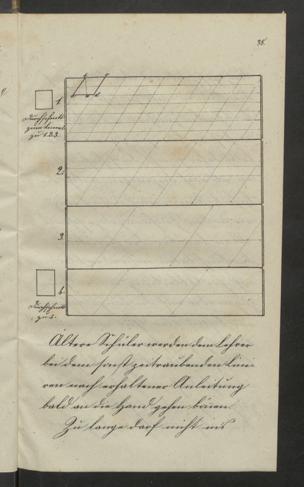 35.
1.
Durchschnitt
zu 1.2.3.
2.
3.
Durchschnitt
Ältere Schüler werden dem Lehrer
bei dem sonst zeitraubenden Lini-
ren nach erhaltener Anleitung
bald an die Hand gehen können.
Zu lange darf nicht ins